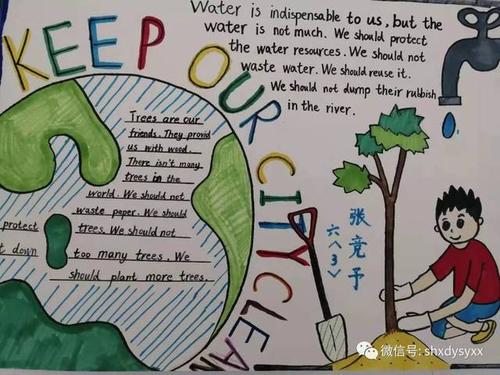 KEEP OUR CITY CLEAN
Water is indispensable to us, but the
water is not much. We should protect
the water resources. We should not
waste water. We should reuse it.
We should not dump their rubbish
in the river.
Trees are our
friends. They provid
us with wood.
There isn't many
trees in the
world. We should not
waste paper. We should
protect trees. We should not
t down too many trees. We
should plant more trees.
张竞予
六(3)
微信号: shxdysyxx